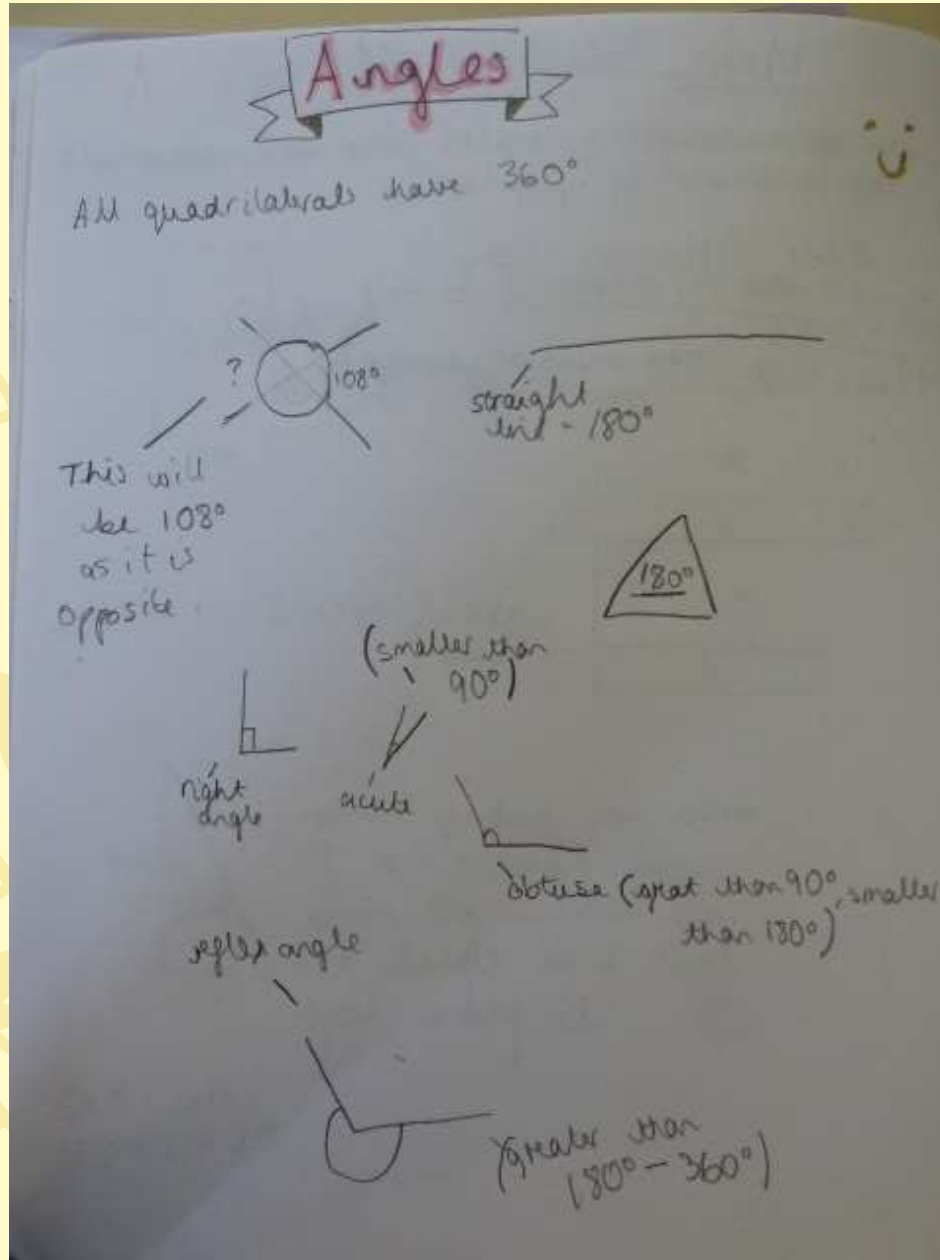 Angles
All quadrilaterals have 360°
?
108°
This will
be 108°
as it is
opposite.
straight
line - 180°
180°
(smaller than
90°)
right
angle
acute
obtuse (grat than 90°, smaller
than 180°)
reflex angle
(greater than
180° - 360°)